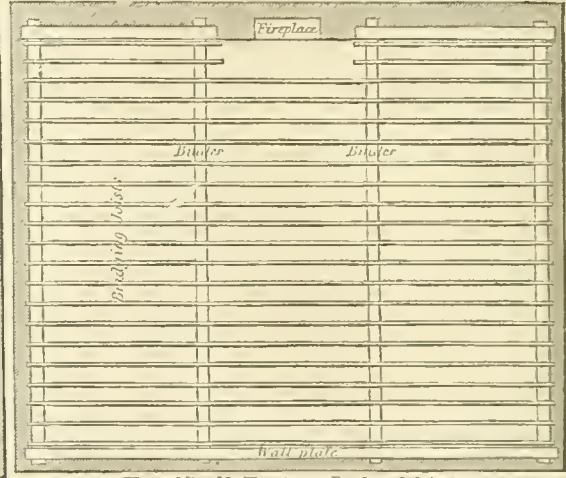 Fireplace
Binder Binder
Bridging Joists
Wall plate